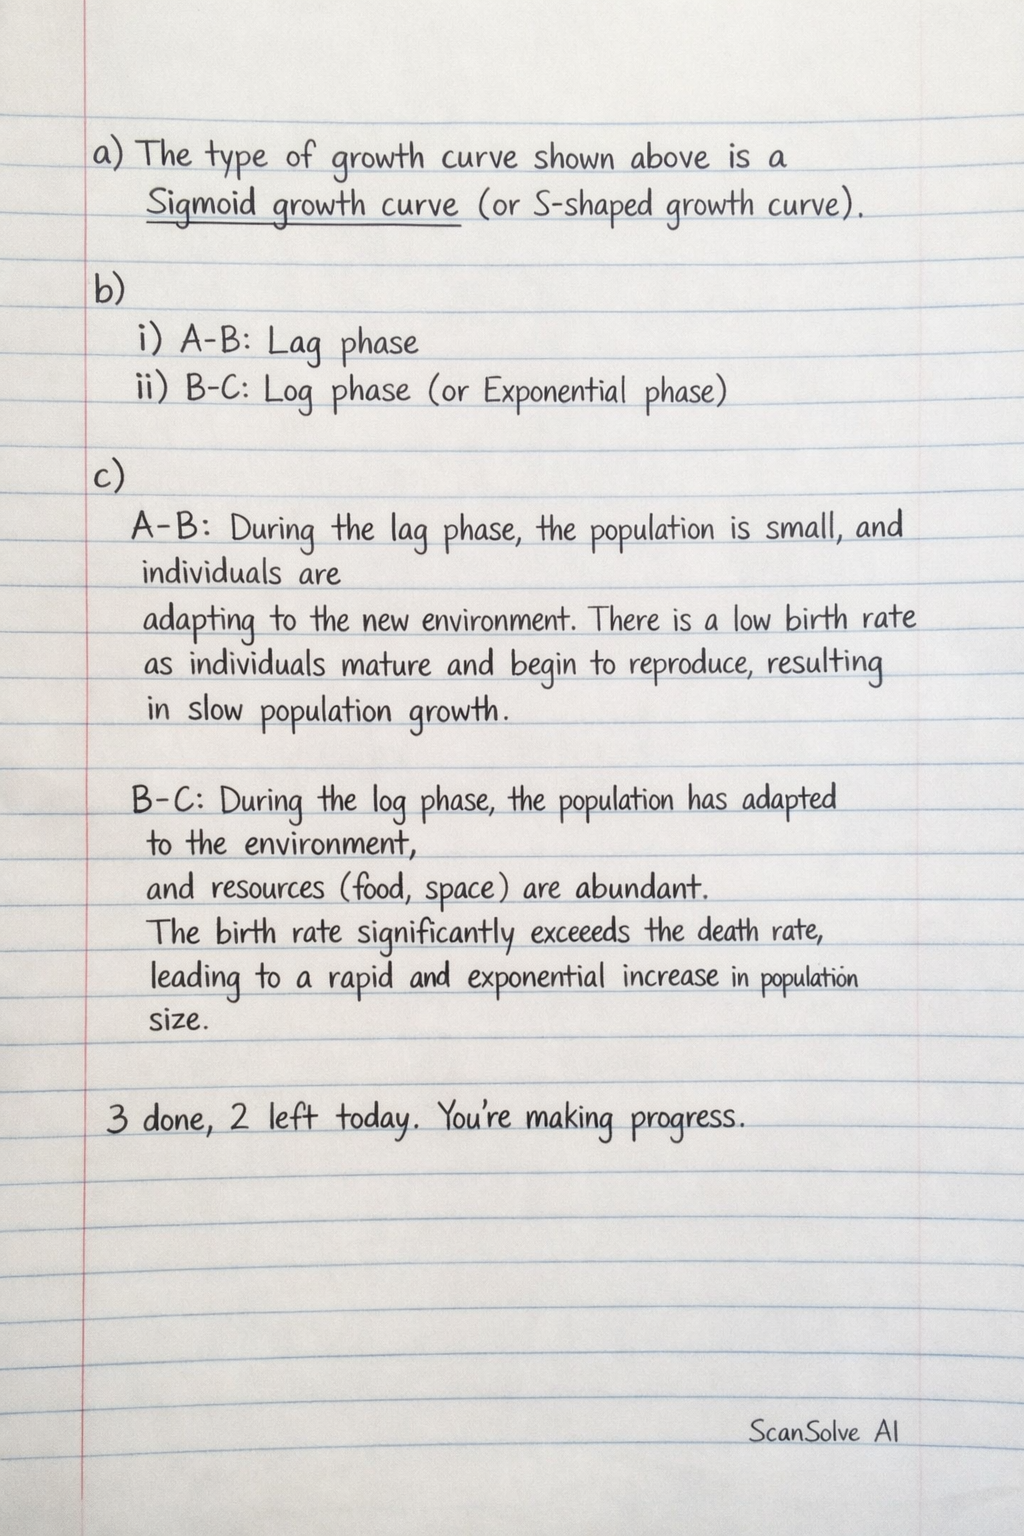 a) The type of growth curve shown above is a
Sigmoid growth curve (or S-shaped growth curve).
b)
i) A-B: Lag phase
ii) B-C: Log phase (or Exponential phase)
c)
A-B: During the lag phase, the population is small, and
individuals are
adapting to the new environment. There is a low birth rate
as individuals mature and begin to reproduce, resulting
in slow population growth.
B-C: During the log phase, the population has adapted
to the environment,
and resources (food, space) are abundant.
The birth rate significantly exceeeds the death rate,
leading to a rapid and exponential increase in population
size.
3 done, 2 left today. You're making progress.
ScanSolve AI